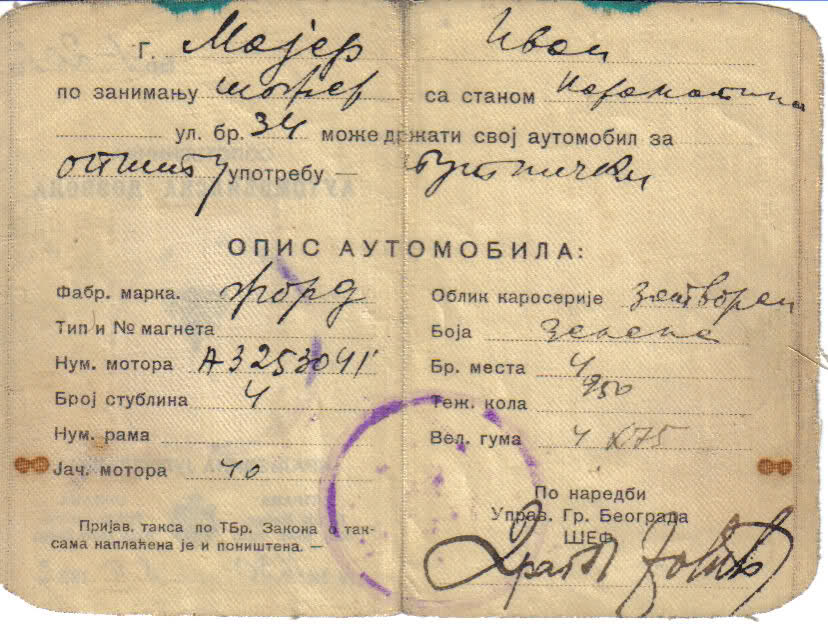 Г. Мајер Иван
по занимању шофер са станом
ул. бр. 34 може држати свој аутомобил за
општу употребу — туристички
ОПИС АУТОМОБИЛА:
Фабр. марка. Форд
Тип и № магнета
Нум. мотора А3253041
Број стублина 4
Нум. рама
Јач. мотора 40
Пријав. такса по ТБр. Закона о так-
сама наплаћена је и поништена. —
Облик каросерије затворен
Боја зелена
Бр. места 4
Теж. кола 950
Вел. гума 4 x 75
По наредби
Управ. Гр. Београда
ШЕФ,